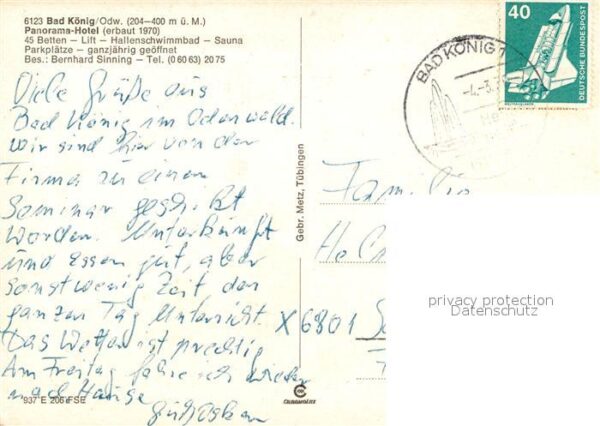 6123 Bad König/Odw. (204–400 m ü. M.)
Panorama-Hotel (erbaut 1970)
45 Betten – Lift – Hallenschwimmbad – Sauna
Parkplätze – ganzjährig geöffnet
Bes.: Bernhard Sinning – Tel. (0 60 63) 20 75
Viele Grüße aus
Bad König im Odenwald.
Wir sind hier von der
Firma zu einem
Seminar geschickt
worden. Unterkunft
und Essen gut, aber
sonst wenig Zeit den
ganzen Tag Unterricht.
Das Wetter ist prächtig
Am Freitag fahre ich wieder
nach Hause
937 E 206 FSE
Gebr. Metz, Tübingen
BAD KÖNIG
40
DEUTSCHE BUNDESPOST
Familie
X6801
privacy protection
Datenschutz